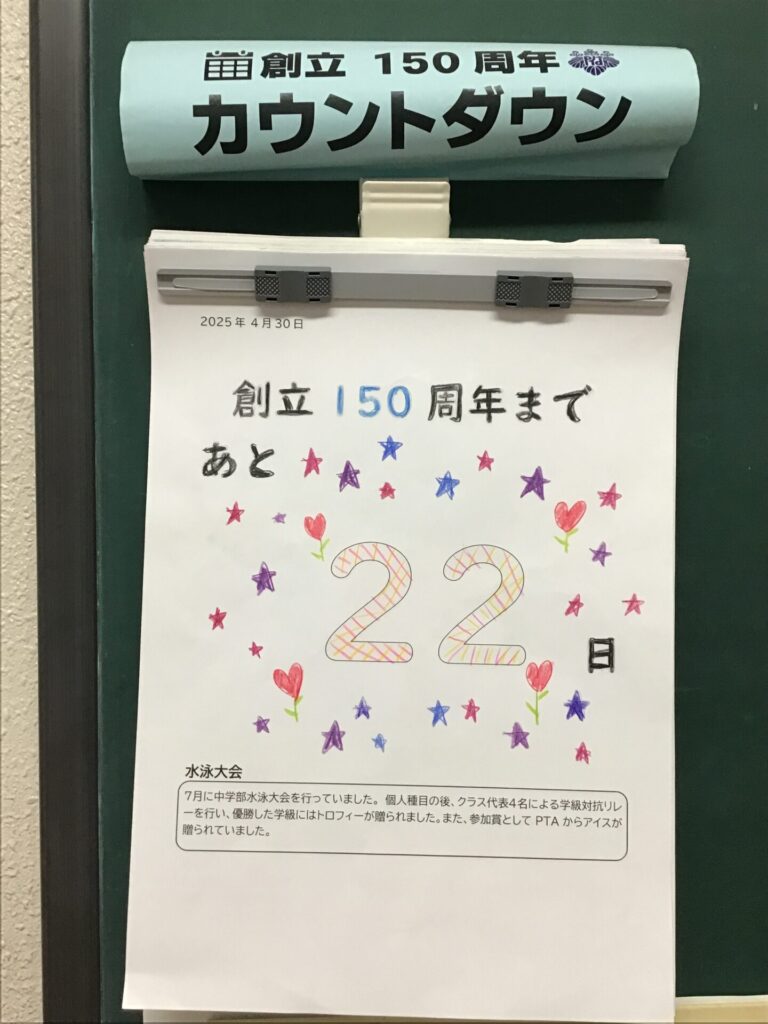 創立 150 周年
カウントダウン
2025年 4月30日
創立 150 周年まで
あと
22
日
水泳大会
7月に中学部水泳大会を行っていました。個人種目の後、クラス代表4名による学級対抗リレ
ーを行い、優勝した学級にはトロフィーが贈られました。また、参加賞として PTA からアイスが
贈られていました。